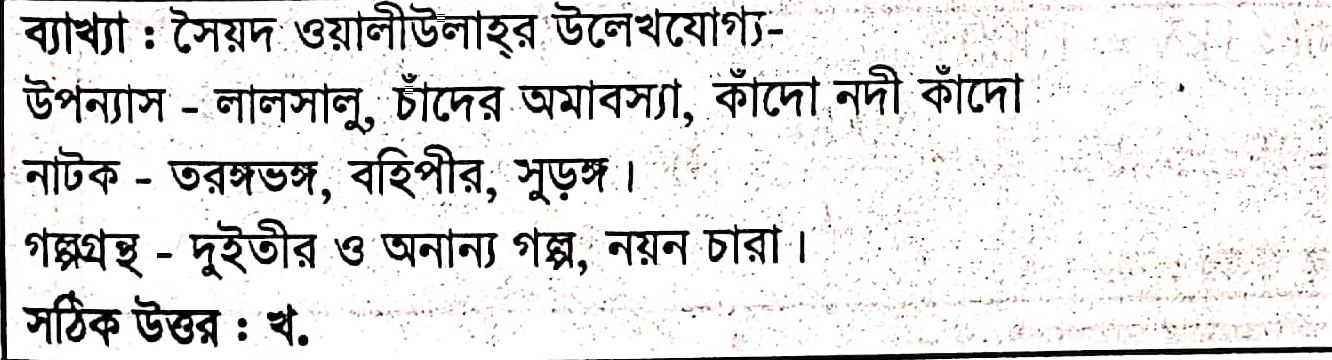 ব্যাখ্যা : সৈয়দ ওয়ালীউলাহ্‌র উলেখযোগ্য-
উপন্যাস - লালসালু, চাঁদের অমাবস্যা, কাঁদো নদী কাঁদো
নাটক - তরঙ্গভঙ্গ, বহিপীর, সুড়ঙ্গ।
গল্পগ্রন্থ - দুইতীর ও অনান্য গল্প, নয়ন চারা।
সঠিক উত্তর : খ.